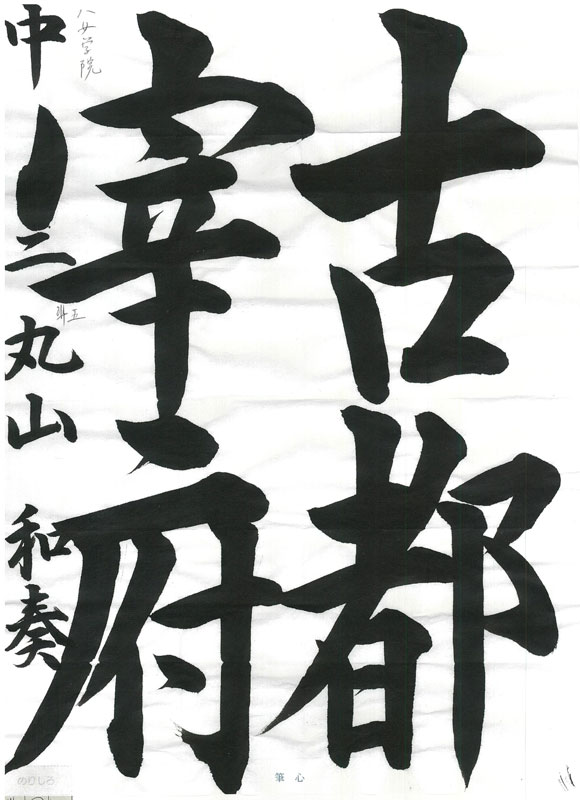 古都
宰府
中二 丸山 和奏
八女学院
五
のりしろ
筆心